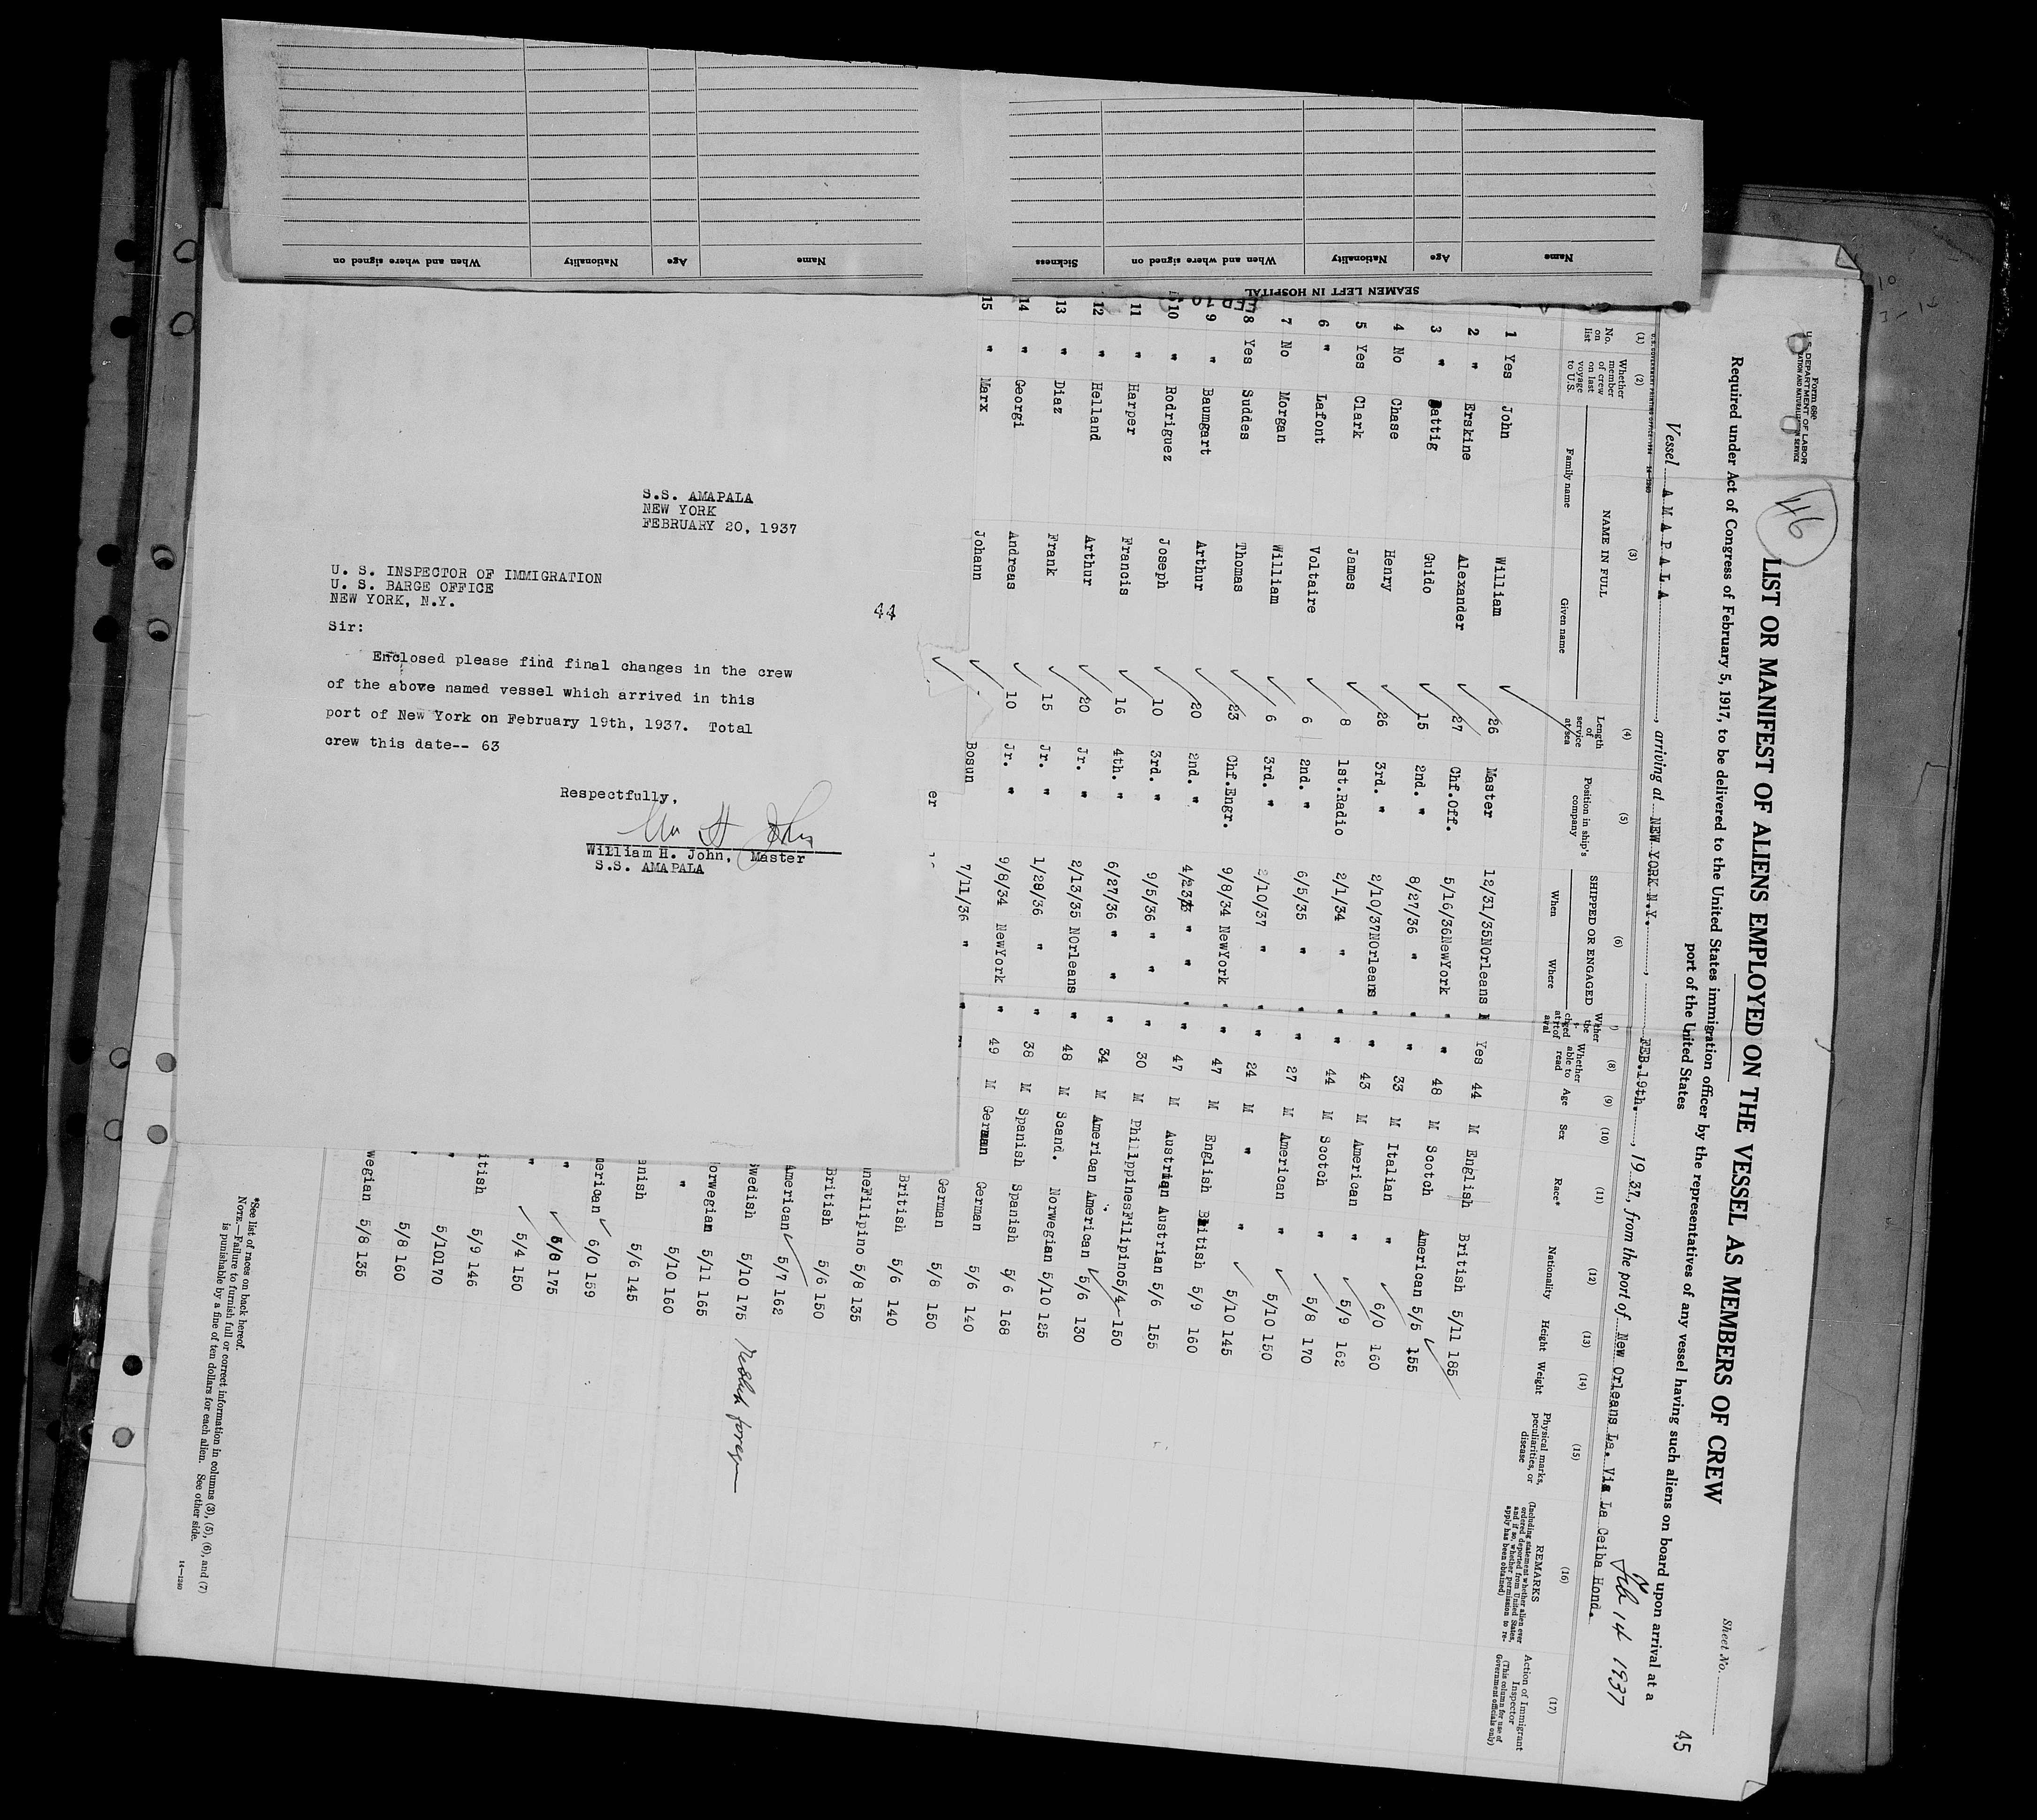 When and where signed on Nationality Age Name
Sickness When and where signed on Nationality Age Name
SEAMEN LEFT IN HOSPITAL
S.S. AMAPALA
NEW YORK
FEBRUARY 20, 1937
U. S. INSPECTOR OF IMMIGRATION
U. S. BARGE OFFICE
NEW YORK, N.Y.
44
Sir:
Enclosed please find final changes in the crew
of the above named vessel which arrived in this
port of New York on February 19th, 1937. Total
crew this date-- 63
Respectfully,
Wm H John
William H. John, Master
S.S. AMAPALA
Form 689
U. S. DEPARTMENT OF LABOR
46
LIST OR MANIFEST OF ALIENS EMPLOYED ON THE VESSEL AS MEMBERS OF CREW
Sheet No.
45
Required under Act of Congress of February 5, 1917, to be delivered to the United States immigration officer by the representatives of any vessel having such aliens on board upon arrival at a
port of the United States
Vessel AMAPALA, arriving at NEW YORK N.Y., FEB.19th., 1937, from the port of New Orleans La. Via La Ceiba Hond.
Feb 14 1937
(1) (2) (3) (4) (5) (6) (8) (9) (10) (11) (12) (13) (14) (15) (16) (17)
No. on list
Whether member of crew on last voyage to U.S.
NAME IN FULL
Family name Given name
Length of service at sea
Position in ship's company
SHIPPED OR ENGAGED
When Where
Whether able to read
Age
Sex
Race*
Nationality
Height
Weight
Physical marks, peculiarities, or disease
REMARKS
(Including statement whether alien ever ordered deported from United States, and if so, whether permission to reapply has been obtained)
Action of Immigrant Inspector
(This column for use of Government officials only)
1 Yes John William 26 Master 12/31/35 NOrleans Yes 44 M English British 5/11 185
2 " Erskine Alexander 27 Chf.Off. 5/16/36 NewYork " " 48 M Scotch American 5/5 155
3 " Rattig Guido 15 2nd. " 8/27/36 " " " 33 M Italian " 6/0 160
4 No Chase Henry 26 3rd. " 2/10/37 NOrleans " " 43 M American " 5/9 162
5 Yes Clark James 8 1st.Radio 2/1/34 " " " 44 M Scotch " 5/8 170
6 " Lafont Voltaire 6 2nd. " 6/5/35 " " " 27 M American " 5/10 150
7 No Morgan William 6 3rd. " 2/10/37 " " " 24 M " " 5/10 145
8 Yes Suddes Thomas 23 Chf.Engr. 9/8/34 NewYork " " 47 M English British 5/9 160
9 " Baumgart Arthur 20 2nd. " 4/23/ " " " 47 M Austrian Austrian 5/6 155
10 " Rodriguez Joseph 10 3rd. " 9/5/36 " " 30 M Philippines Filipino 5/4 150
11 " Harper Francis 16 4th. " 6/27/36 " " " 34 M American American 5/6 130
12 " Helland Arthur 20 Jr. " 2/13/35 NOrleans " 48 M Scand. Norwegian 5/10 125
13 " Diaz Frank 15 Jr. " 1/29/36 " " 38 M Spanish Spanish 5/6 168
14 " Georgi Andreas 10 Jr. " 9/8/34 NewYork " 49 M German German 5/6 140
15 " Marx Johann Bosun 7/11/36 " " German 5/8 150
er
British 5/6 140
Filipino 5/8 135
British 5/6 150
American 5/7 162
wedish 5/10 175
orwegian 5/11 165
" 5/10 160
anish 5/6 145
merican 6/0 159
" 5/8 175
" 5/4 150
itish 5/9 146
" 5/10 170
" 5/8 160
wegian 5/8 135
*See list of races on back hereof.
NOTE.—Failure to furnish full or correct information in columns (3), (5), (6), and (7)
is punishable by a fine of ten dollars for each alien. See other side.
14—1240